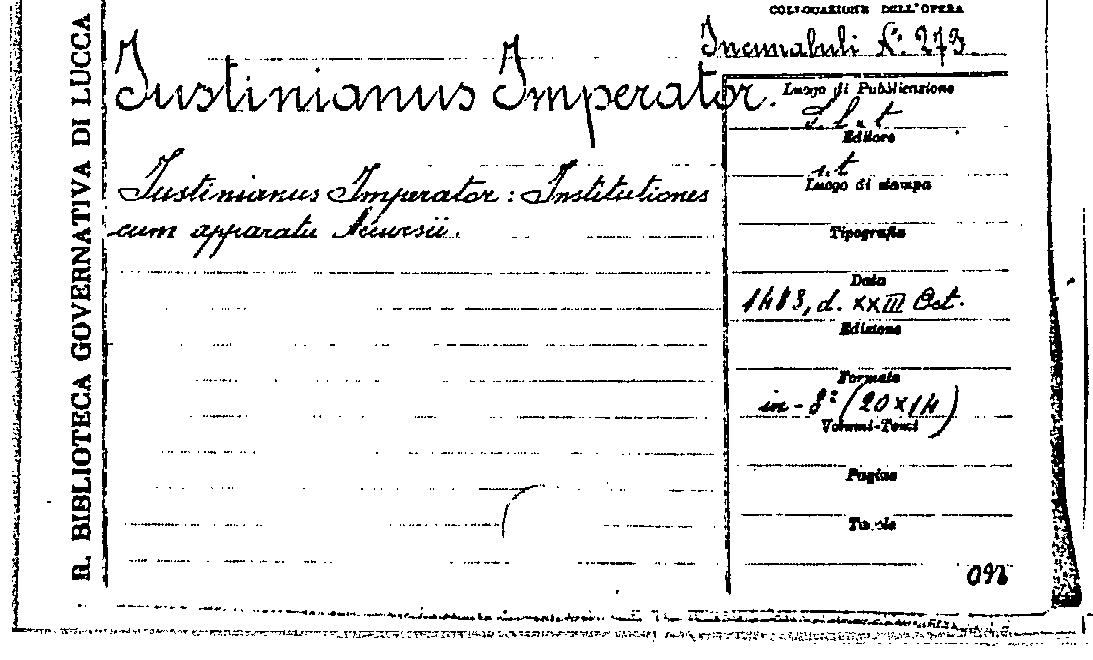 R. BIBLIOTECA GOVERNATIVA DI LUCCA
COLLOCAZIONE DELL'OPERA
Incunabuli N.º 273.
Iustinianus Imperator.
Iustinianus Imperator: Institutiones
cum apparatu Accursii.
Luogo di Pubblicazione
S. l. e t
Editore
s. t
Luogo di stampa
Tipografia
Data
1483, d. XXIII Oct.
Edizione
Formato
in-8º (20x14)
Volumi-Tomi
Pagine
Tavole